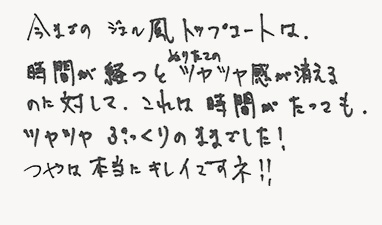 今までの ジェル風トップコートは、
時間が経つと ぬりたての ツヤツヤ感が消える
のに対して、これは時間がたっても、
ツヤツヤ ぷっくりのままでした！
つやは本当にキレイですネ！！